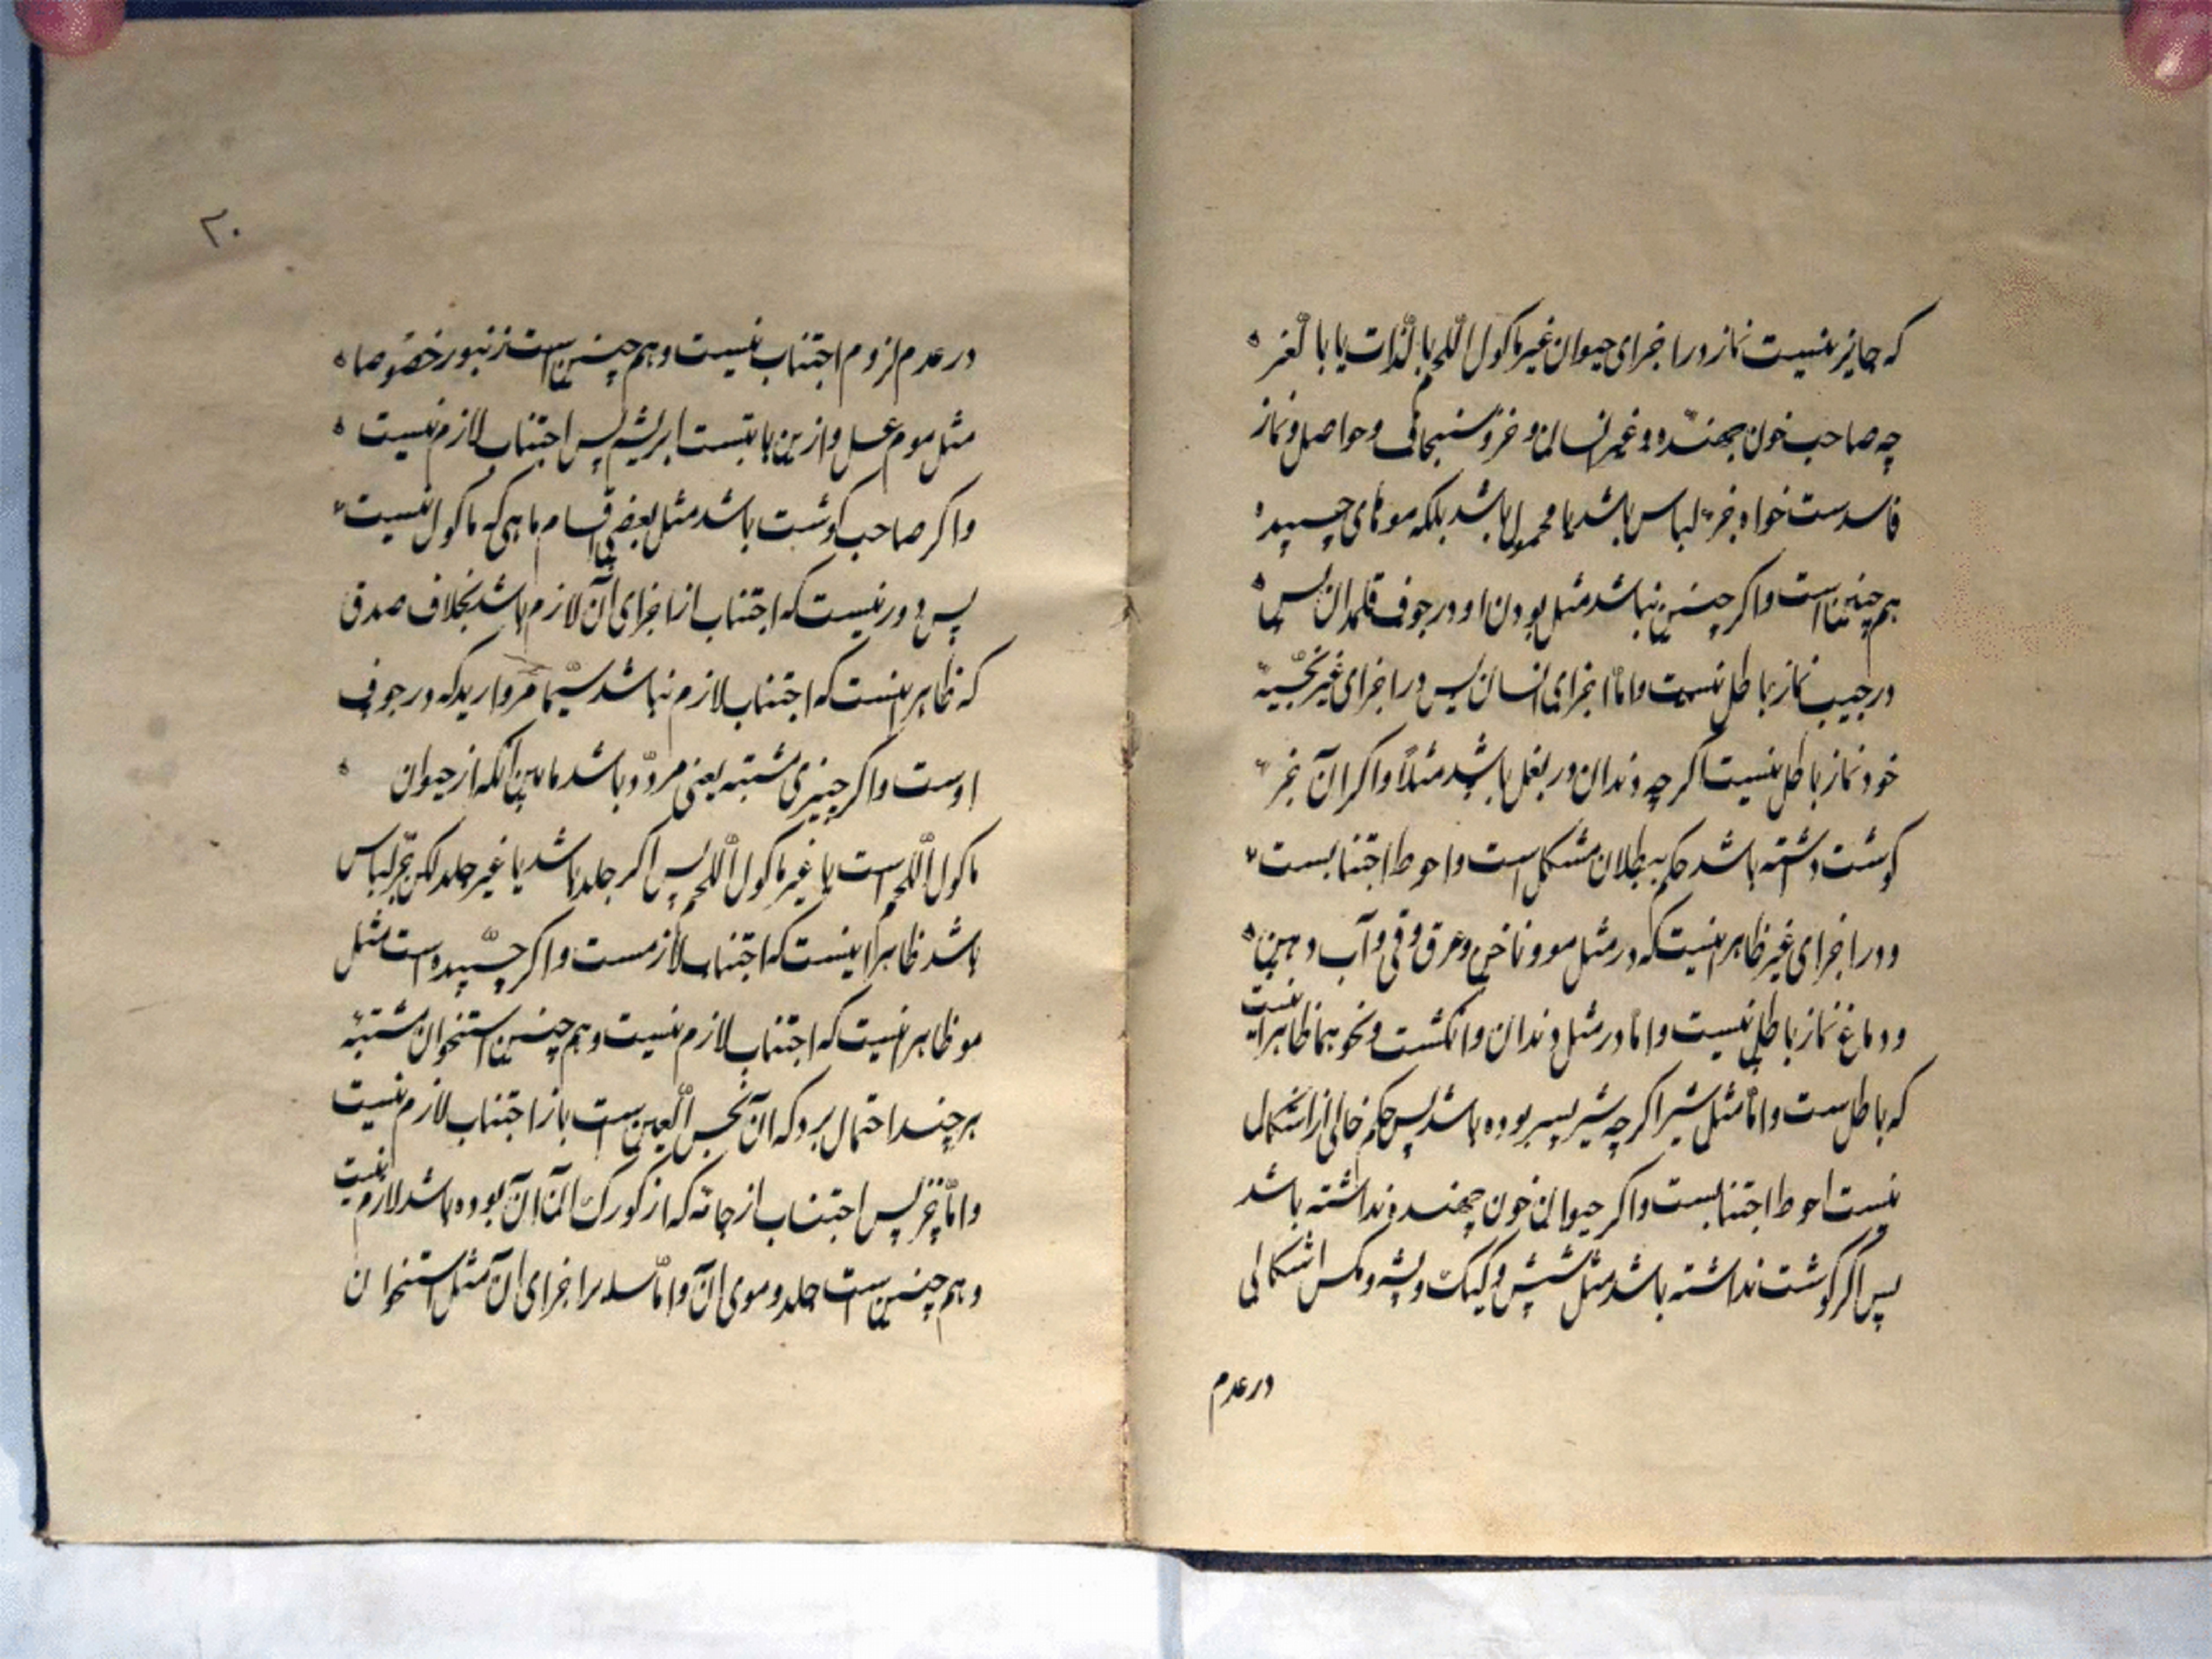 که جایز نیست نماز در اجزای حیوان غیر ماکول اللحم بالذات یا بالغیر
چه صاحب خون جهنده و غیر انسان و خز و سنجاب و حواصل و نماز
فاسد ست خواه جزء لباس باشد یا محمول باشد بلکه موهای چسپیده
هم چنین است و اکر چنین نباشد مثل بودن او در جوف قلمدان پس
در جیب نماز باطل نیست و امّا اجزای انسان پس در اجزای غیر نجسه
خود نماز باطل نیست اکر چه دندان در بغل باشد مثلاً و اکر آن جزء
کوشت داشته باشد حکم ببطلان مشکل است و احوط اجتنابست
و در اجزای غیر ظاهر اینست که در مثل مو و ناخن و عرق و قی و آب دهن
و دماغ نماز باطل نیست و امّا در مثل دندان و انکشت و نحو هما ظاهر اینست
که باطل ست و امّا مثل شیر اکر چه شیر پسر بوده باشد پس حکم خالی از اشکال
نیست احوط اجتنابست و اکر حیوان خون جهنده نداشته باشد
پس اکر کوشت نداشته باشد مثل شپش و کیک و پشه و مکس اشکالی
در عدم
۲۰
در عدم لزوم اجتناب نیست و هم چنین است زنبور خصوصا
مثل موم عسل و ازین بابتست ابریشم پس اجتناب لازم نیست
و اکر صاحب کوشت باشد مثل بعضی اقسام ماهی که ماکول نیست
پس دور نیست که اجتناب از اجزای آن لازم باشد بخلاف صدف
که ظاهر اینست که اجتناب لازم نباشد سیّما مروارید که در جوف
اوست و اکر چیزی مشتبه یعنی مردّد باشد مابین آنکه از حیوان
ماکول اللحم است یا غیر ماکول اللحم پس اکر جلد باشد یا غیر جلد لکن جزء لباس
باشد ظاهر اینست که اجتناب لازمست و اکر چسپیده است مثل
مو ظاهر اینست که اجتناب لازم نیست و هم چنین استخوان مشتبه
هر چند احتمال برود که آن نجس العین است باز اجتناب لازم نیست
و امّا خز پس اجتناب از که از کورک آن بوده باشد لازم نیست
و هم چنین است جلد و موی آن و امّا سایر اجزای آن مثل استخوان